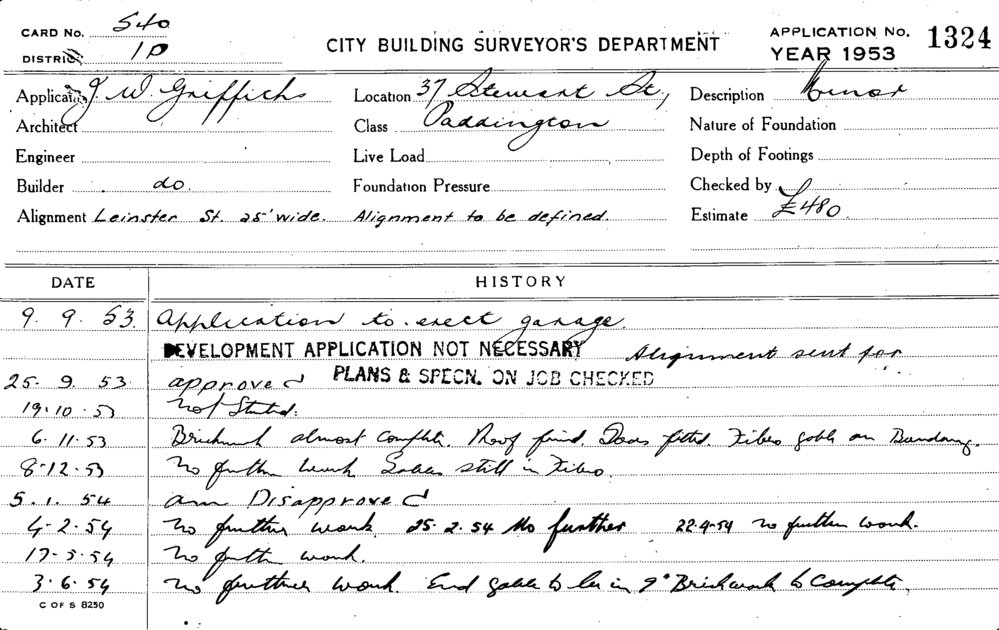 CARD No. 540
DISTRICT 1D
CITY BUILDING SURVEYOR'S DEPARTMENT
APPLICATION No. 1324
YEAR 1953
Applicant J W. Griffiths Location 37 Stewart St, Description Minor
Architect Class Paddington Nature of Foundation
Engineer Live Load Depth of Footings
Builder do. Foundation Pressure Checked by
Alignment Leinster St. 25' wide. Alignment to be defined. Estimate £480
DATE HISTORY
9. 9. 53. Application to erect garage.
DEVELOPMENT APPLICATION NOT NECESSARY Alignment sent for
25. 9. 53. approved PLANS & SPECN. ON JOB CHECKED
19.10.53 Not Started.
6.11.53 Brickwork almost complete. Roof fixed. Doors fitted. Fibro gable on Boundary.
8.12.53 No further work Gables still in Fibro.
5. 1. 54 am Disapproved
4-2-54 No further work. 25.2.54 No further 22-4-54 No further work.
17-5-54 No further work.
3.6.54 No further work. End gable to be in 9" Brickwork to Complete.
C OF S 8250